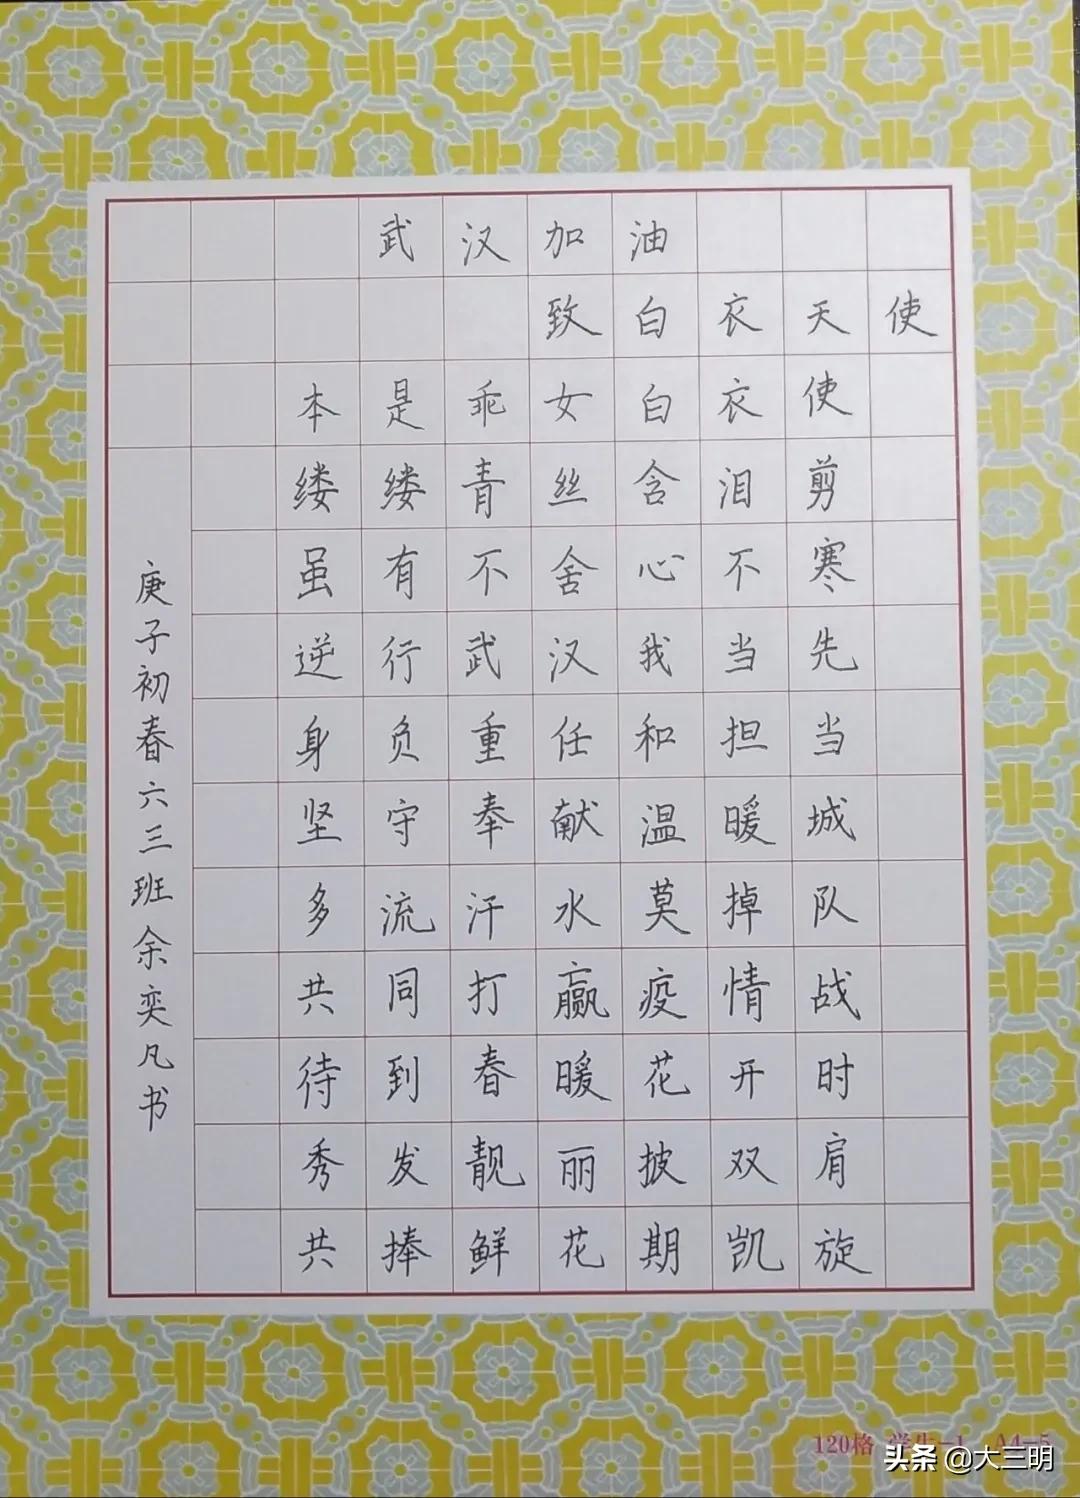 武汉加油
致白衣天使
本是乖女白衣使
缕缕青丝含泪剪
虽有不舍心不寒
逆行武汉我当先
身负重任和担当
坚守奉献温暖城
多流汗水莫掉队
共同打赢疫情战
待到春暖花开时
秀发靓丽披双肩
共捧鲜花期凯旋
庚子初春六三班余奕凡书
120格 学生-1 A4-5
头条 @大三明